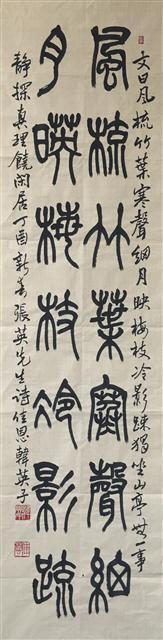 風梳竹葉寒聲細
月暎梅枝冷影疏
文曰風梳竹葉寒聲細月映梅枝冷影疎獨坐山亭無一事
靜探真理饒閑居丁酉新春張英先生诗佳思韓英子